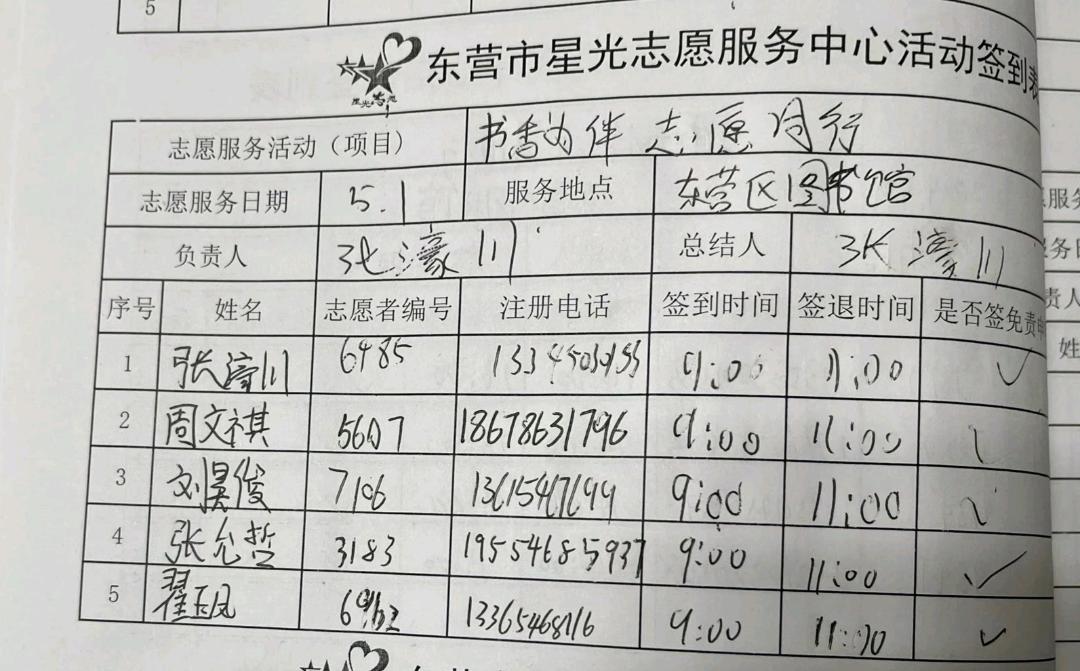 5
东营市星光志愿服务中心活动签到表
星光志愿
志愿服务活动（项目） 书香为伴 志愿同行
志愿服务日期 5.1 服务地点 东营区图书馆
负责人 张濠川 总结人 张濠川
序号 姓名 志愿者编号 注册电话 签到时间 签退时间 是否签免责申
1 张濠川 6485 9:00 11:00 ✓
2 周文祺 5607 18678631796 9:00 11:00
3 刘昊俊 7106 9:00 11:00
4 张允哲 3183 19554685937 9:00 11:00 ✓
5 翟玉凤 9:00 11:00 ✓